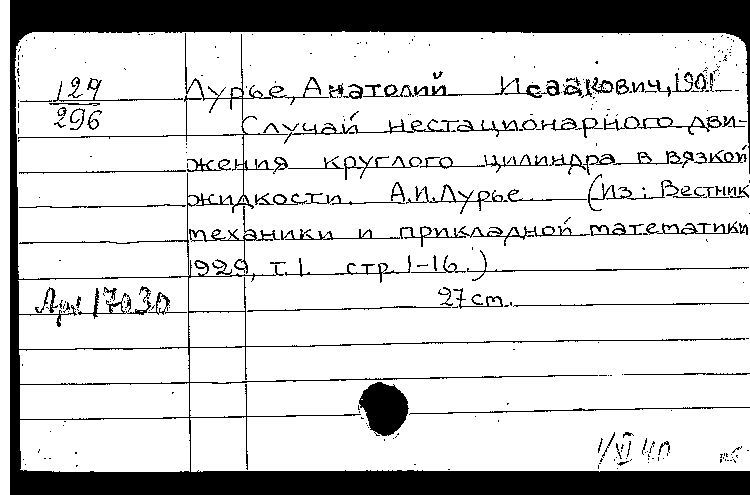 124
296
Лурье, Анатолий Исаакович, 1901
Случай нестационарного дви-
жения круглого цилиндра в вязкой
жидкости. А.И.Лурье (Из: Вестник
механики и прикладной математики
1929, т.1. стр. 1-16.)
27 cm.
17030
1/XI 40